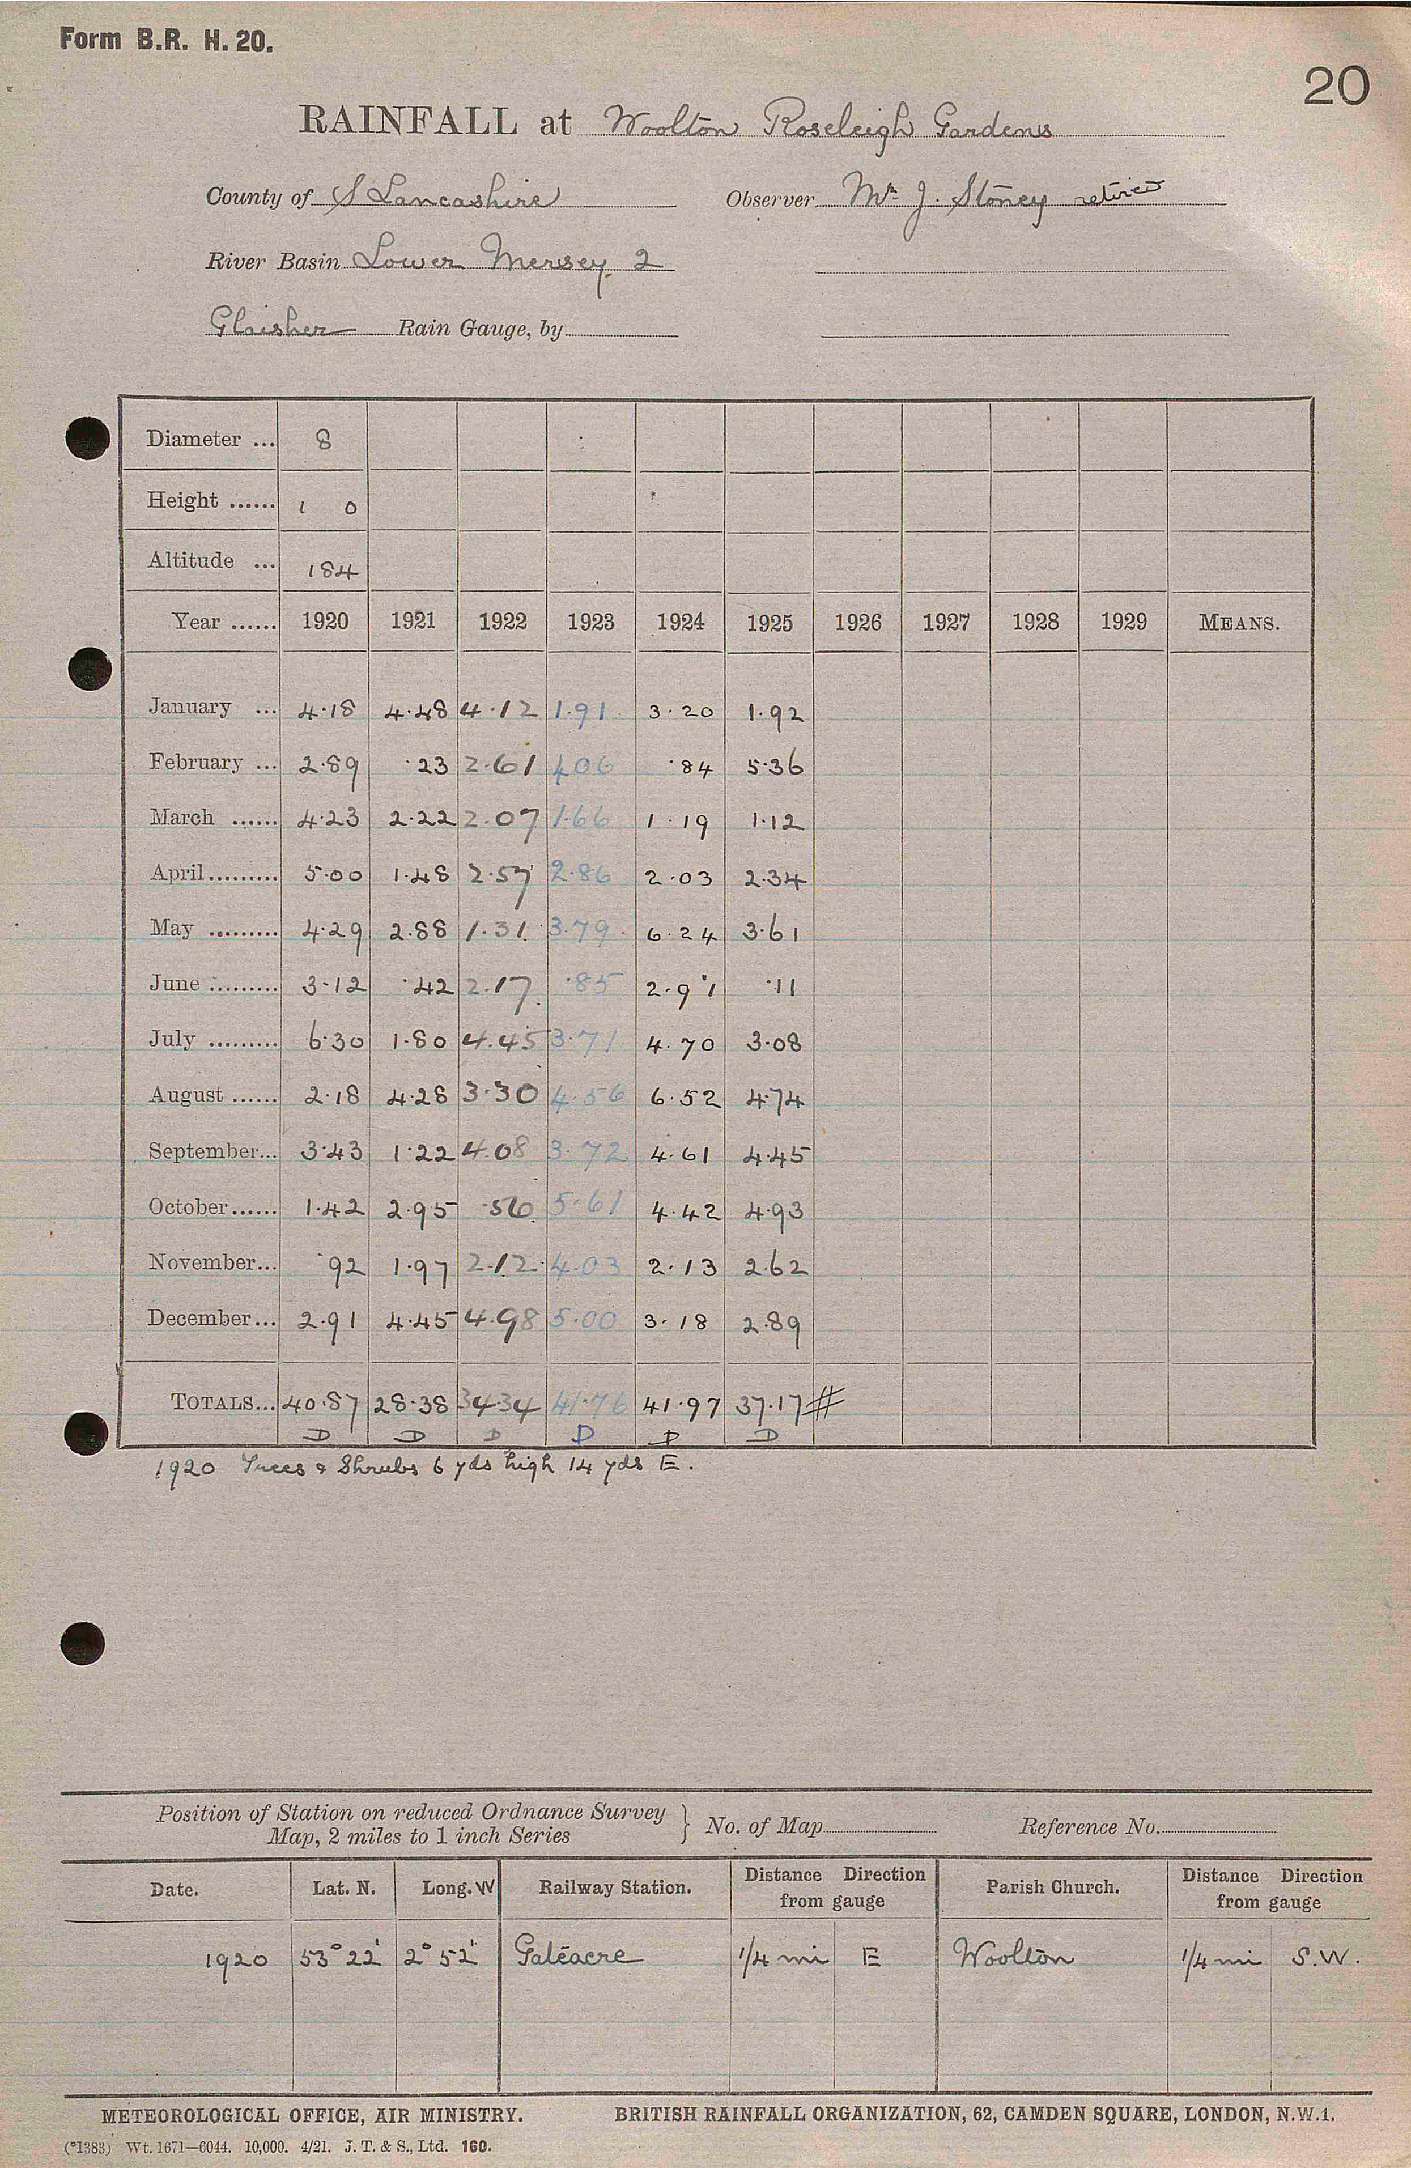 Form B.R. H. 20.
20
RAINFALL at Woolton Roseleigh Gardens
County of S Lancashire Observer Mr J. Stoney retired
River Basin Lower Mersey 2
Glaisher Rain Gauge, by
Diameter ... 8
Height ...... 1 0
Altitude ... 184
Year ...... 1920 1921 1922 1923 1924 1925 1926 1927 1928 1929 MEANS.
January ... 4.18 4.48 4.12 1.91 3.20 1.92
February ... 2.89 .23 2.61 4.06 .84 5.36
March ...... 4.23 2.22 2.07 1.66 1.19 1.12
April......... 5.00 1.48 2.57 2.86 2.03 2.34
May ......... 4.29 2.88 1.31 3.79 6.24 3.61
June ......... 3.12 .42 2.17 .85 2.91 .11
July ......... 6.30 1.80 4.45 3.71 4.70 3.08
August ...... 2.18 4.28 3.30 4.56 6.52 4.74
September... 3.43 1.22 4.08 3.72 4.61 4.45
October...... 1.42 2.95 .56 5.61 4.42 4.93
November... .92 1.97 2.12 4.03 2.13 2.62
December... 2.91 4.45 4.98 5.00 3.18 2.89
TOTALS... 40.87 28.38 34.34 41.76 41.97 37.17 #
D D D D D D
1920 Trees & Shrubs 6 yds high 14 yds E.
Position of Station on reduced Ordnance Survey
Map, 2 miles to 1 inch Series } No. of Map Reference No.
Date. Lat. N. Long. W Railway Station. Distance Direction from gauge Parish Church. Distance Direction from gauge
1920 53° 22' 2° 52' Gateacre 1/4 mi E Woolton 1/4 mi S.W.
METEOROLOGICAL OFFICE, AIR MINISTRY. BRITISH RAINFALL ORGANIZATION, 62, CAMDEN SQUARE, LONDON, N.W.1.
(*1383) Wt. 1671—6044. 10,000. 4/21. J. T. & S., Ltd. 160.